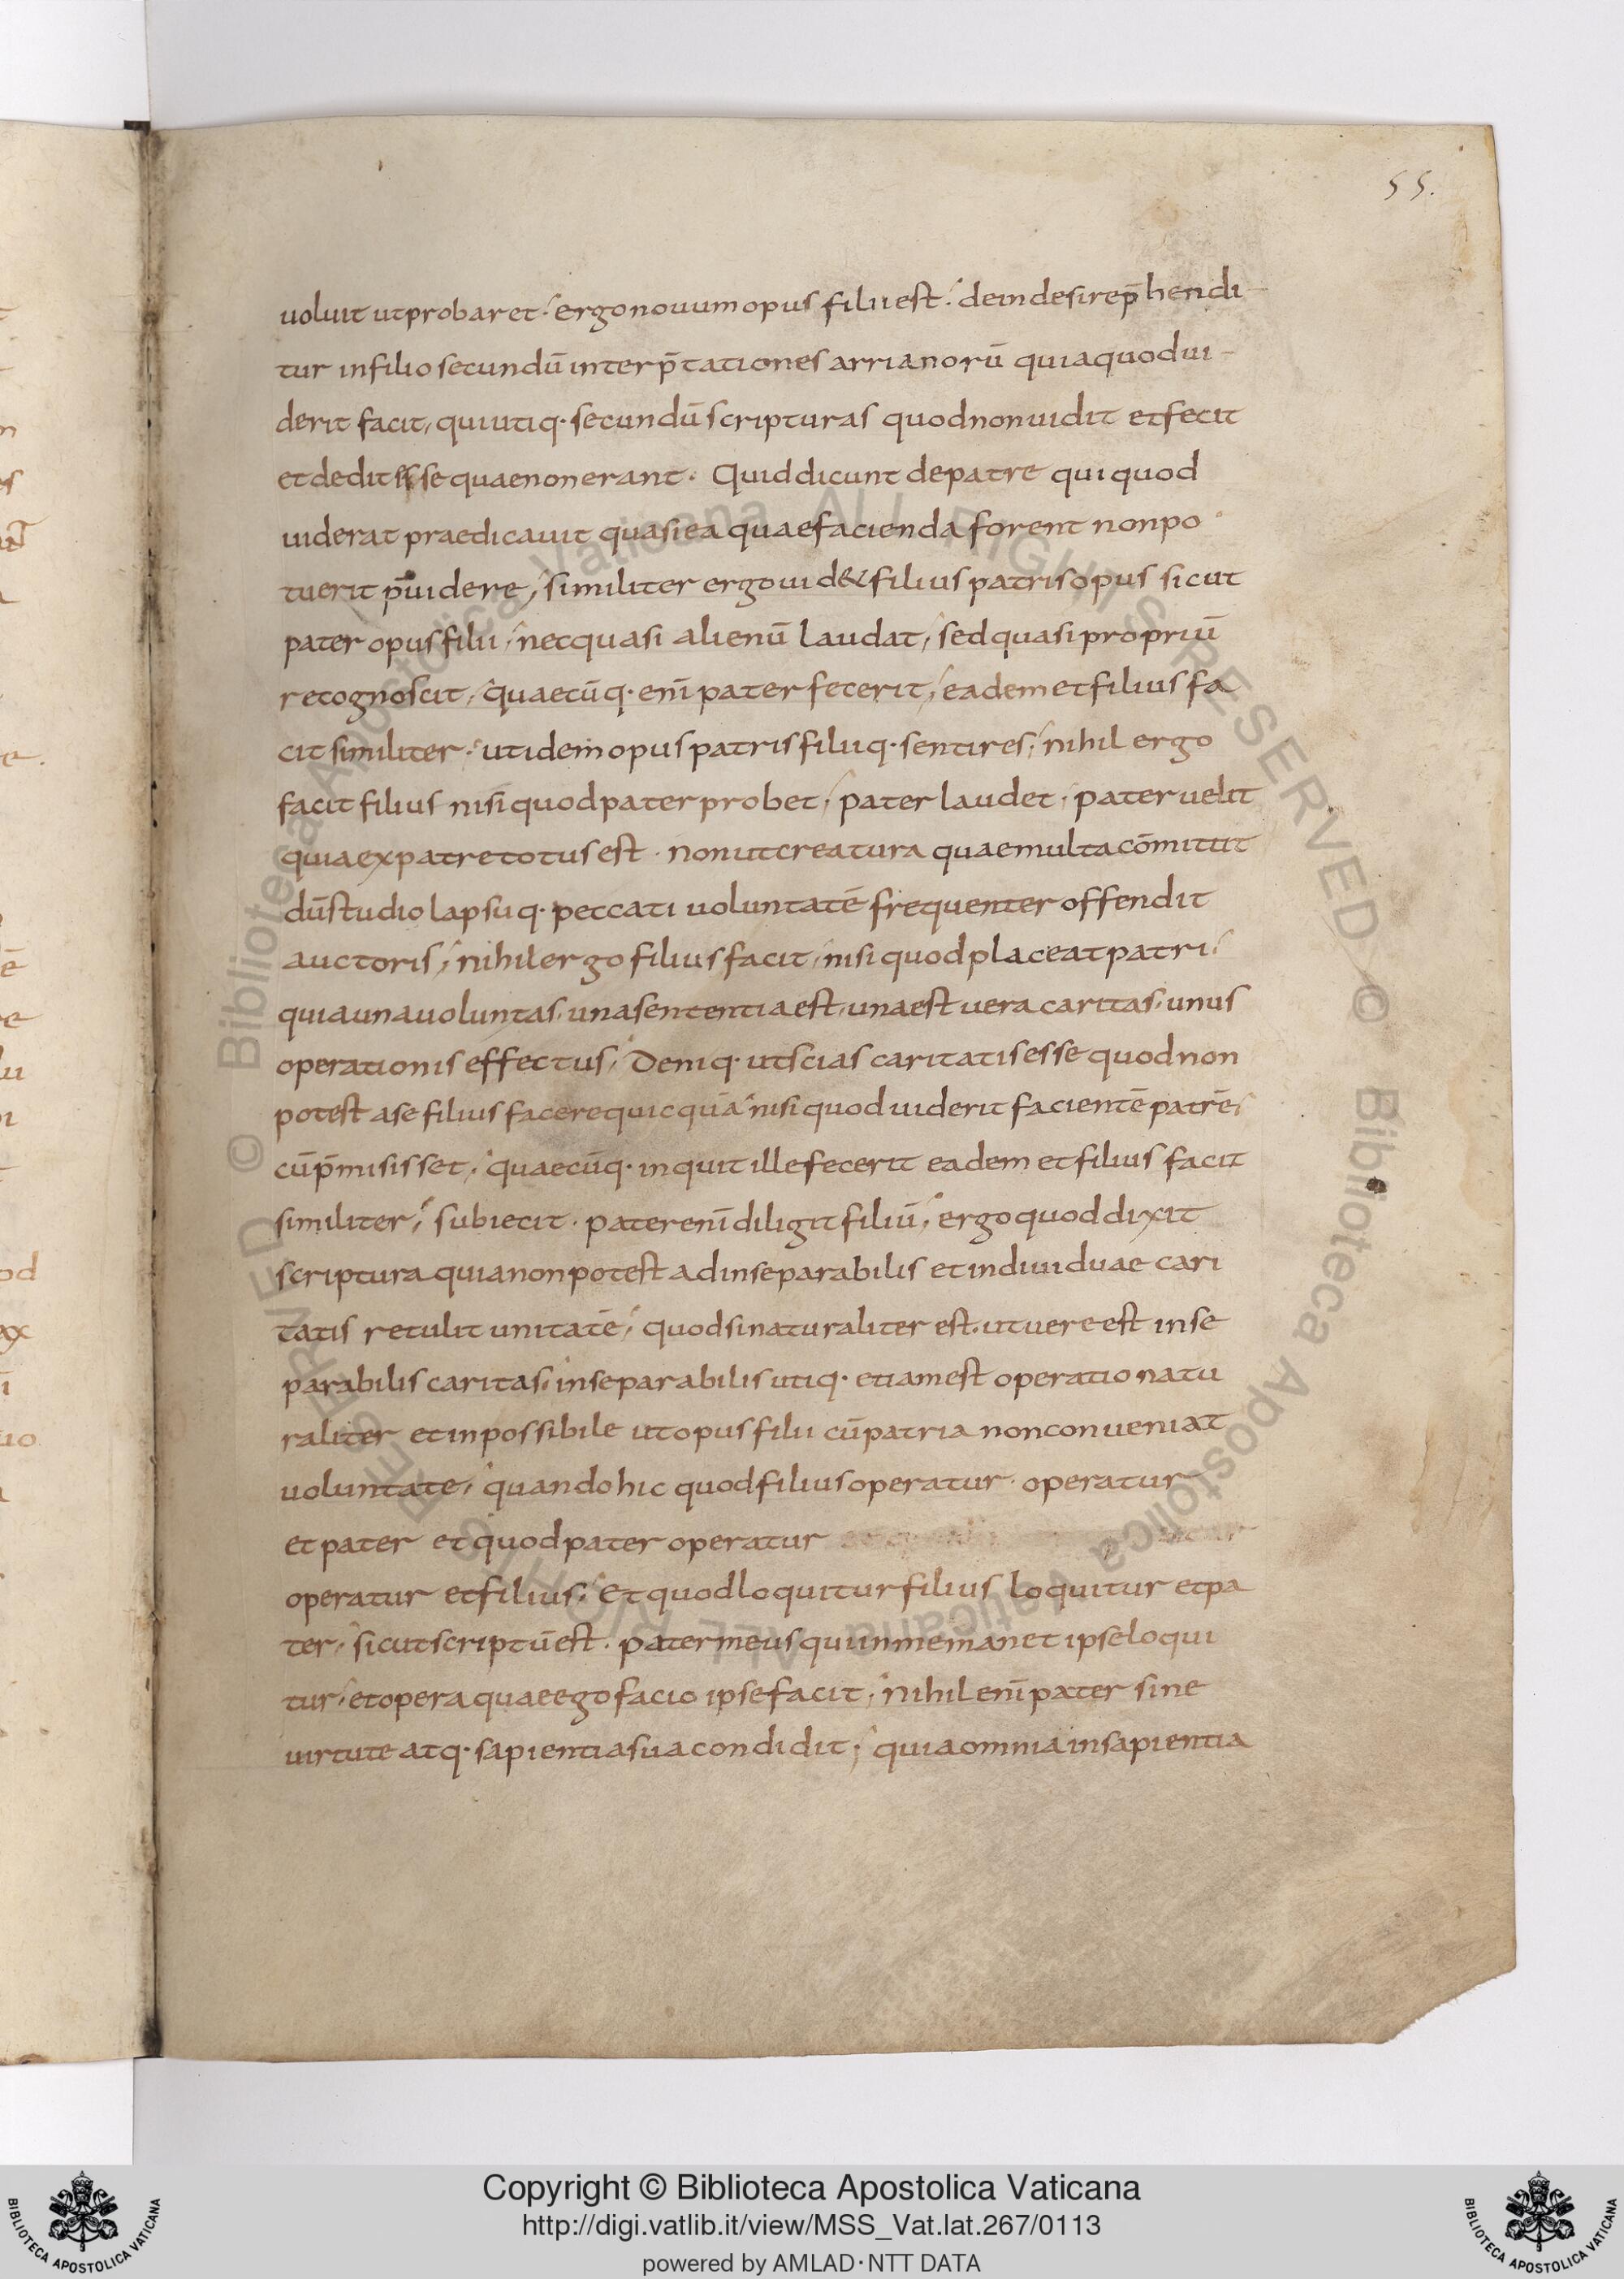 55.
uoluit ut probaret. ergo nouum opus filii est. deinde si rep̄hendi
tur in filio secundū interp̄tationes arrianorū quia quod ui
derit facit, qui utiq· secundū scripturas quod non uidit et fecit
et dedit esse quae non erant. Quid dicunt de patre qui quod
uiderat praedicauit quasi ea quae facienda forent non po
tuerit p̄uidere, similiter ergo uid& filius patris opus sicut
pater opus filii, nec quasi alienū laudat, sed quasi propriū
recognoscit, quaecūq· enī pater fecerit, eadem et filius fa
cit similiter. ut idem opus patris filiiq· sentires, nihil ergo
facit filius nisi quod pater probet, pater laudet, pater uelit
quia ex patre totus est. non ut creatura quae multa cōmittit
dū studio lapsuq· peccati uoluntatē frequenter offendit
auctoris, nihil ergo filius facit, nisi quod placeat patri,
quia una uoluntas, una sententia est, una est uera caritas, unus
operationis effectus, Deniq· ut scias caritatis esse quod non
potest a se filius facere quicquā nisi quod uiderit facientē patrē,
cū p̄misisset, quaecūq· inquit ille fecerit eadem et filius facit
similiter, subiecit. pater enī diligit filiū, ergo quod dixit
scriptura quia non potest ad inseparabilis et indiuiduae cari
tatis retulit unitatē, quod si naturaliter est, ut uere est inse
parabilis caritas, inseparabilis utiq· etiam est operatio natu
raliter et inpossibile ut opus filii cū patria non conueniat
uoluntate, quando hic quod filius operatur. operatur
et pater et quod pater operatur
operatur et filius, Et quod loquitur filius loquitur et pa
ter, sicut scriptū est. pater meus qui in me manet ipse loqui
tur, et opera quae ego facio ipse facit, Nihil enī pater sine
uirtute atq· sapientia sua condidit, quia omnia in sapientia
© Biblioteca Apostolica Vaticana ALL RIGHTS RESERVED
© Biblioteca Apostolica Vaticana ALL RIGHTS RESERVED
Copyright © Biblioteca Apostolica Vaticana
http://digi.vatlib.it/view/MSS_Vat.lat.267/0113
powered by AMLAD·NTT DATA
BIBLIOTECA APOSTOLICA VATICANA
BIBLIOTECA APOSTOLICA VATICANA